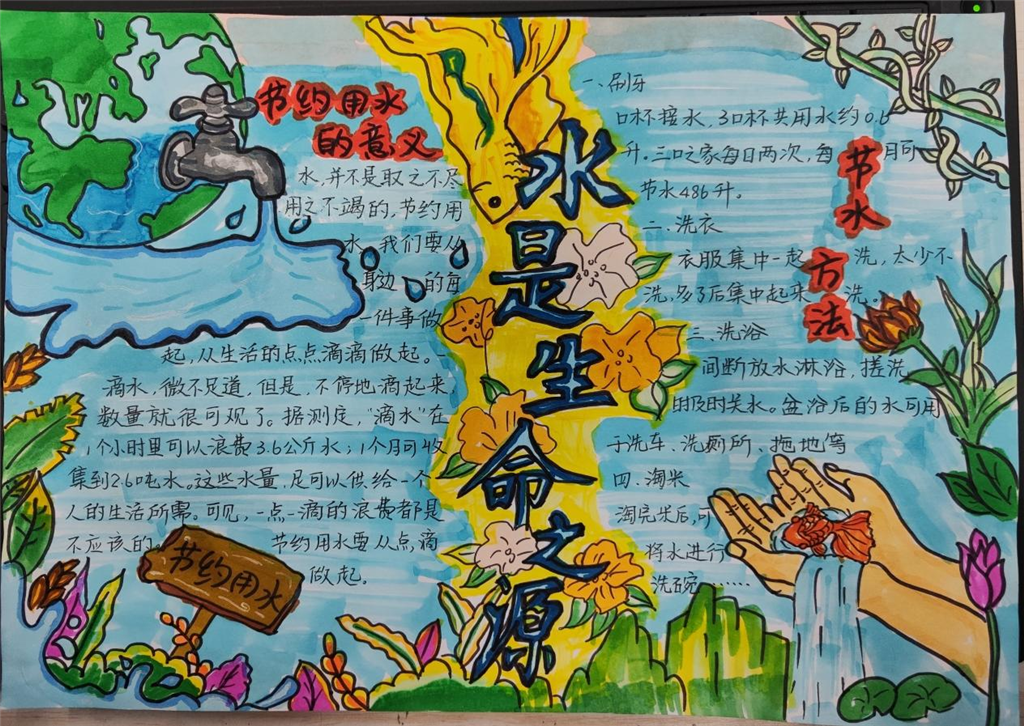 节约用水
的意义
水,并不是取之不尽
用之不竭的,节约用
水,我们要从
身边 的每
一件事做
起,从生活的点点滴滴做起。一
滴水,微不足道,但是,不停地滴起来
数量就很可观了。据测定,“滴水”在
1个小时里可以浪费3.6公斤水;1个月可收
集到2.6吨水。这些水量,足可以供给一个
人的生活所需。可见,一点一滴的浪费都是
不应该的 节约用水要从点滴
做起。
节约用水
水是生命之源
节水方法
一、刷牙
口杯接水,3口杯共用水约0.6
升.三口之家每日两次,每 月可
节水486升.
二、洗衣
衣服集中一起 洗,太少不
洗,多了后集中起来 洗。
三、洗浴
间断放水淋浴,搓洗
时及时关水。盆浴后的水可用
于洗车、洗厕所、拖地等
四、淘米
淘完米后,可
将水进行
洗碗……